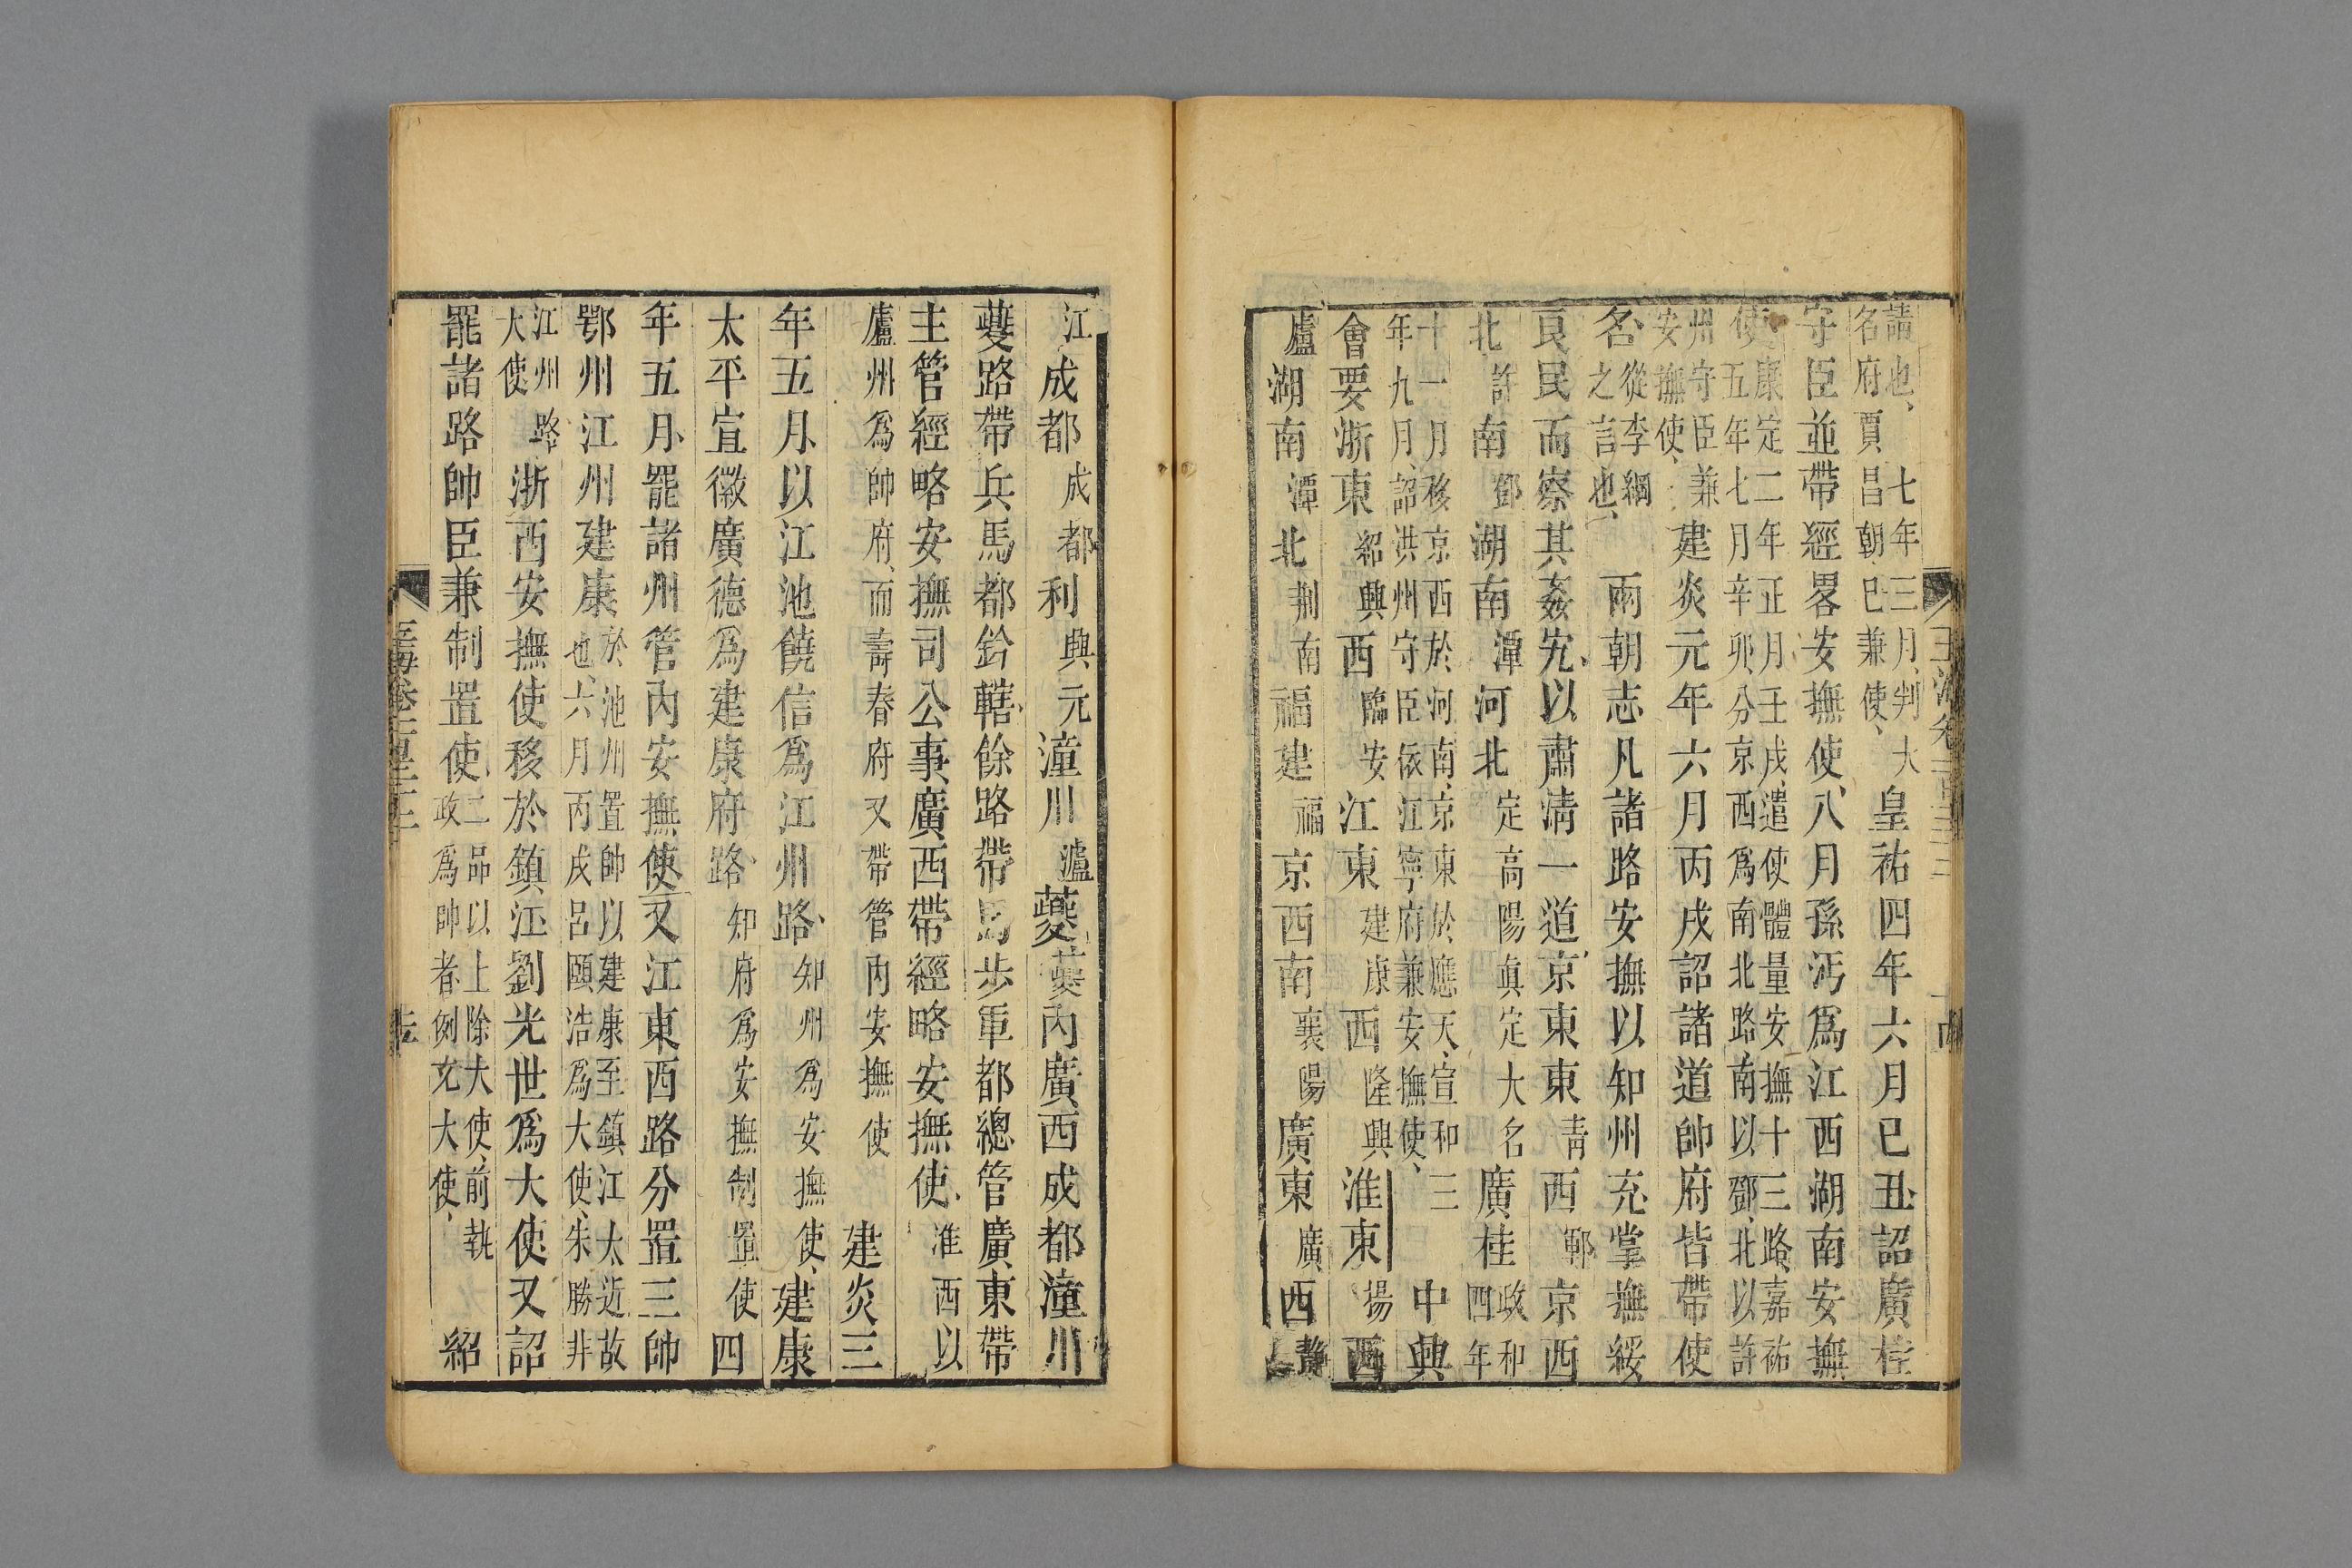 請也、七年三月、判大名府賈昌朝、已兼使、皇祐四年六月己丑詔廣桂
守臣並帶經畧安撫使、八月孫沔爲江西湖南安撫
使康定二年正月壬戌、遣使體量安撫十三路、嘉祐五年七月辛卯分京西爲南北路、南以鄧、北以許
州守臣兼安撫使、建炎元年六月丙戌詔諸道帥府皆帶使
名從李綱之言也、兩朝志凡諸路安撫以知州充、掌撫綏
良民而察其姦宄、以肅淸一道、京東東青西鄆京西
北許南鄧湖南潭河北定高陽眞定大名廣桂政和四年
十一月移京西於河南、京東於應天、宣和三年九月、詔洪州守臣依江寧府兼安撫使、中興
會要浙東紹興西臨安江東建康西隆興淮東揚西
廬湖南潭北荆南福建福京西南襄陽廣東廣西靜
江成都成都利興元潼川瀘夔夔內廣西成都潼川
夔路帶兵馬都鈐轄、餘路帶馬步軍都總管廣東帶
主管經略安撫司公事廣西帶經略安撫使、淮西以
廬州爲帥府、而壽春府又帶管內安撫使 建炎三
年五月、以江池饒信爲江州路、知州爲安撫使、建康
太平宣徽廣德爲建康府路、知府爲安撫制置使 四
年五月、罷諸州管內安撫使又江東西路分置三帥
鄂州江州建康於池州置帥以建康至鎮江太近故也、六月丙戌呂頤浩爲大使、朱勝非
江州路大使浙西安撫使移於鎮江劉光世爲大使又詔
罷諸路帥臣兼制置使、二品以上除大使、前執政爲帥者、例充大使、 紹